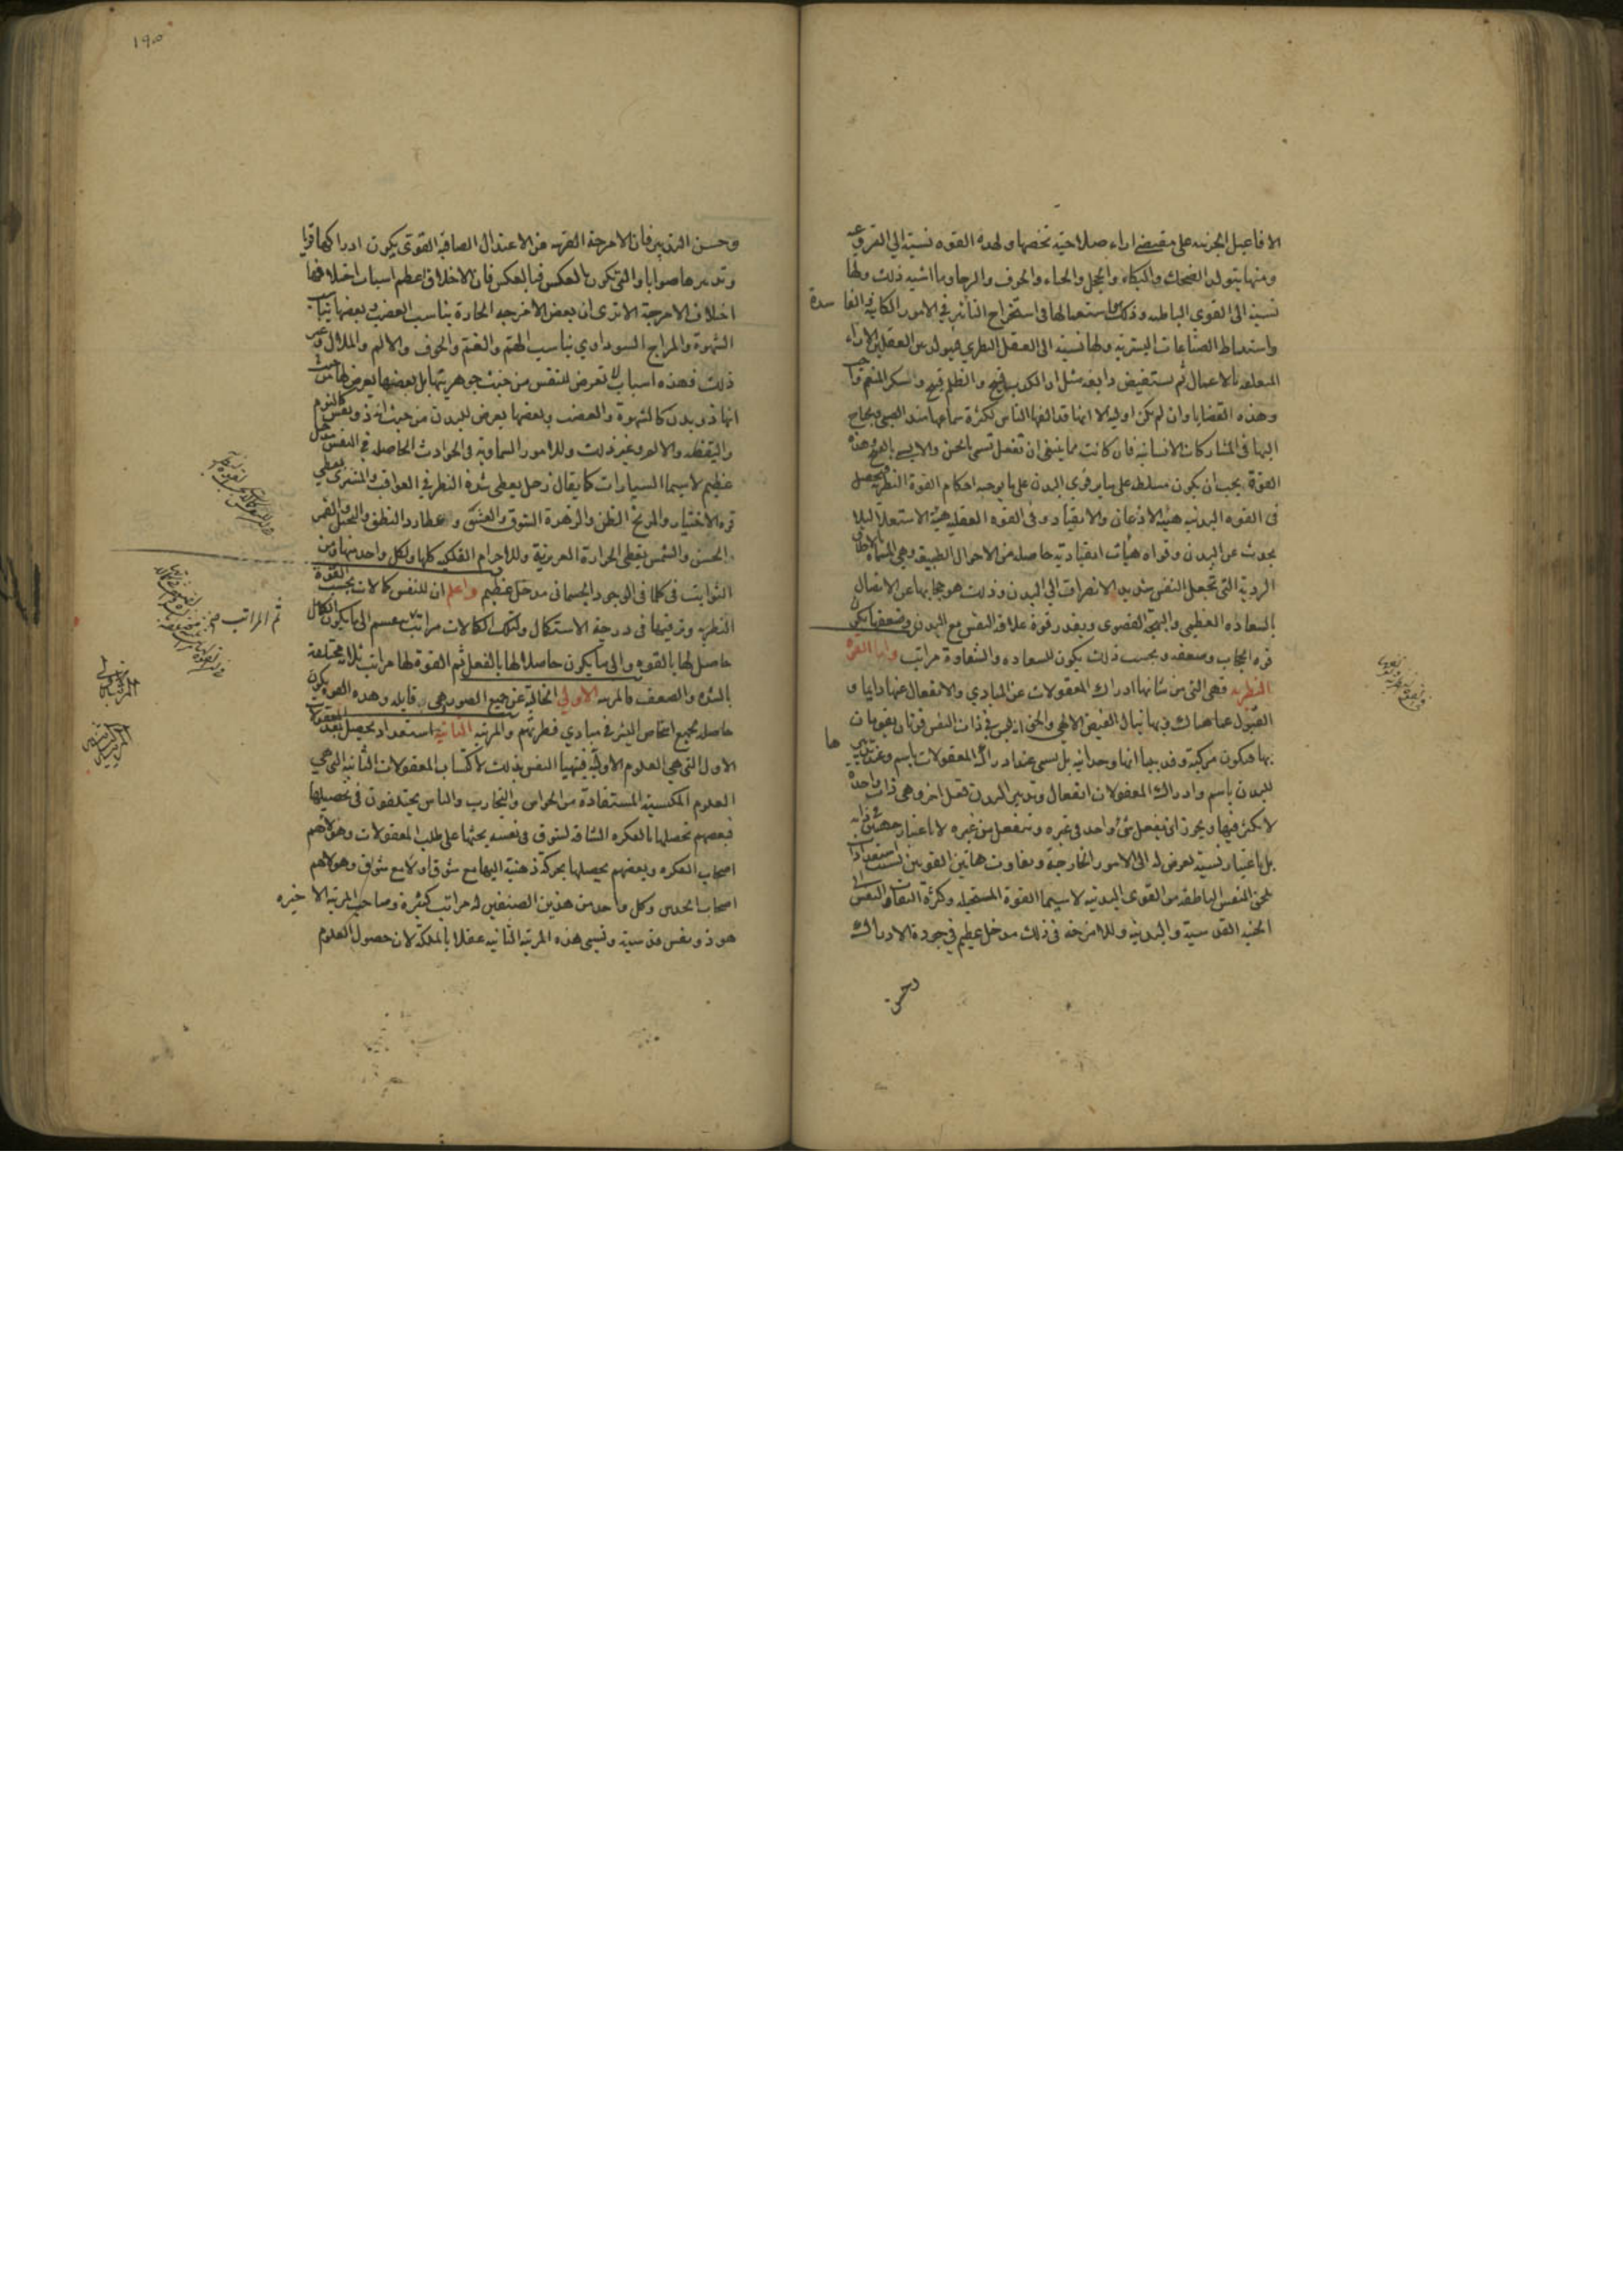 الافاعيل الجزئيه على مقتضى اراء صلاحيته تخصها ولهذه القوه نسبة الى القوه
ومنها يتولد الضحك والبكاء والخجل والحياء والخوف والرجا وما اشبه ذلك ولها
نسبة الى القوى الباطنه وذلك استعمالها فى استخراج التدابير فى الامور الكاينه الفاسدة
واستنباط الصناعات البشريه ولها نسبة الى العقل النظري فيتولد بين العقلين الاراء
المتعلقه بالاعمال ثم يستفيض ذايعه مثل ان الكذب قبيح والظلم قبيح والشكر المنعم واجب
وهذه القضايا وان لم تكن اوليه الا انها قد الفها الناس لكثرة سماعها منذ الصبى
اليها فى المشاركات الانسانيه فان كانت مما ينبغى ان تفعل تسمى بالحسن والا بالقبيح وهذه
القوة يجب ان يكون مسلطه على ساير قوى البدن على ما يوجبه احكام القوة النظريه فيحصل
فى القوه البدنيه هيئة الاذعان والانقياد وفى القوه العقليه هيئة الاستعلا ليلا
يحدث عن البدن وقواه هيأت انقياديه حاصله من الاحوال الطبيعيه وهى المسماه بالاخلاق
الرديه التى تجعل النفس شديد الانصراف الى البدن وذلك هو حجابها عن الاتصال
بالسعاده العظمى والبهجة القصوى وبقدر قوة علاقه النفس مع البدن وضعفها يكون
قوه الحجاب وضعفه وبحسب ذلك يكون للسعاده والشقاوة مراتب واما القوه
النظريه فهى التى من شانها ادراك المعقولات عن المبادي والانفعال عنها دايما و
القبول عما هناك وبها ينال الفيض الالهي والحق انه ليس فى ذات النفس قوتان يقومان
بها فيكون مركبة وقد بينا انها وحدانيه بل يسمى عند ادراك المعقولات باسم وعند تدبيرها
للبدن باسم وادراك المعقولات انفعال وتدبير البدن فعل اخر وهى ذات واحدة
لا تكثر فيها ويجوز ان يفعل شئ واحد فى غيره وينفعل من غيره لا باعتبار جهتين ذاته
بل باعتبار نسبة تعرض له الى الامور الخارجة وتفاوت هاتين القوتين لسبب استعداد
يلحق النفس الناطقه من القوى البدنيه لا سيما القوة المتخيله وكثرة التفات النفس الى
الجنبه القدسية والبدنيه وللامزجه فى ذلك مدخل عظيم فى جودة الادراك
وحسن
١٩٥
وحسن التدبير فان الامزجة القريبه من الاعتدال الصافيه القوى يكون ادراكها قويا
وتدبيرها صوابا والتى تكون بالعكس فبالعكس فان الاخلاق اعظم اسباب اختلافها
اختلاف الامزجة الا ترى ان بعض الامزجه الحارة يناسب الغضب وبعضها يناسب
الشهوة والمزاج السوداوي يناسب الهم والغم والخوف والالم والملال وغير
ذلك فهذه اسباب تعرض للنفس من حيث جوهريتها بل بعضها يعرض لها من حيث
انها ذو بدن كالشهوة والغضب وبعضها يعرض للبدن من حيث انه ذو نفس كالنوم
واليقظه والالم وغير ذلك وللامور السماوية فى الحوادث الحاصله فى النفس مدخل
عظيم لا سيما السيارات كما يقال زحل يعطى شدة النظر فى العواقب والمشترى يعطى
قوه الاختيار والمريخ الظن والزهرة الشوق والعشق وعطارد النطق والتخيل والقمر
الحس والشمس يعطى الحرارة الغريزية وللاجرام الفلكيه كلها ولكل واحد منها ومن
الثوابت فى كلما فى الوجود الجسمانى مدخل عظيم واعلم ان للنفس كمالات بحسب القوة
النظريه وترقيها فى درجة الاستكمال ولتلك الكمالات مراتب ينقسم الى ما يكون الكمال
حاصل لها بالقوه والى ما يكون حاصلا لها بالفعل ثم القوة لها مراتب ثلاث مختلفة
بالشده والضعف فالمرتبه الاولى الخالية عن جميع الصور هى قابله وهذه القوه يكون
حاصله لجميع اشخاص البشر فى مبادي فطرتهم والمرتبه الثانيه استعداد تحصيل بعد المعقولات
الاول التى هى العلوم الاولية فيتهيأ النفس بذلك لاكتساب المعقولات الثانيه التى هى
العلوم المكتسبة المستفادة من الحواس والتجارب والناس يختلفون فى تحصيلها
فبعضهم تحصلها بالفكره الشاقه لشوق فى نفسه يحثها على طلب المعقولات وهولاهم
اصحاب الفكره وبعضهم يحصلها بحركة ذهنية اليها مع شوق او لا مع شوق وهولاهم
اصحاب الحدس وكل واحد من هذين الصنفين له مراتب كثيرة وصاحب المرتبه الاخيره
هو ذو نفس قدسية وتسمى هذه المرتبه الثانيه عقلا بالملكة لان حصول العلوم
ثم المراتب